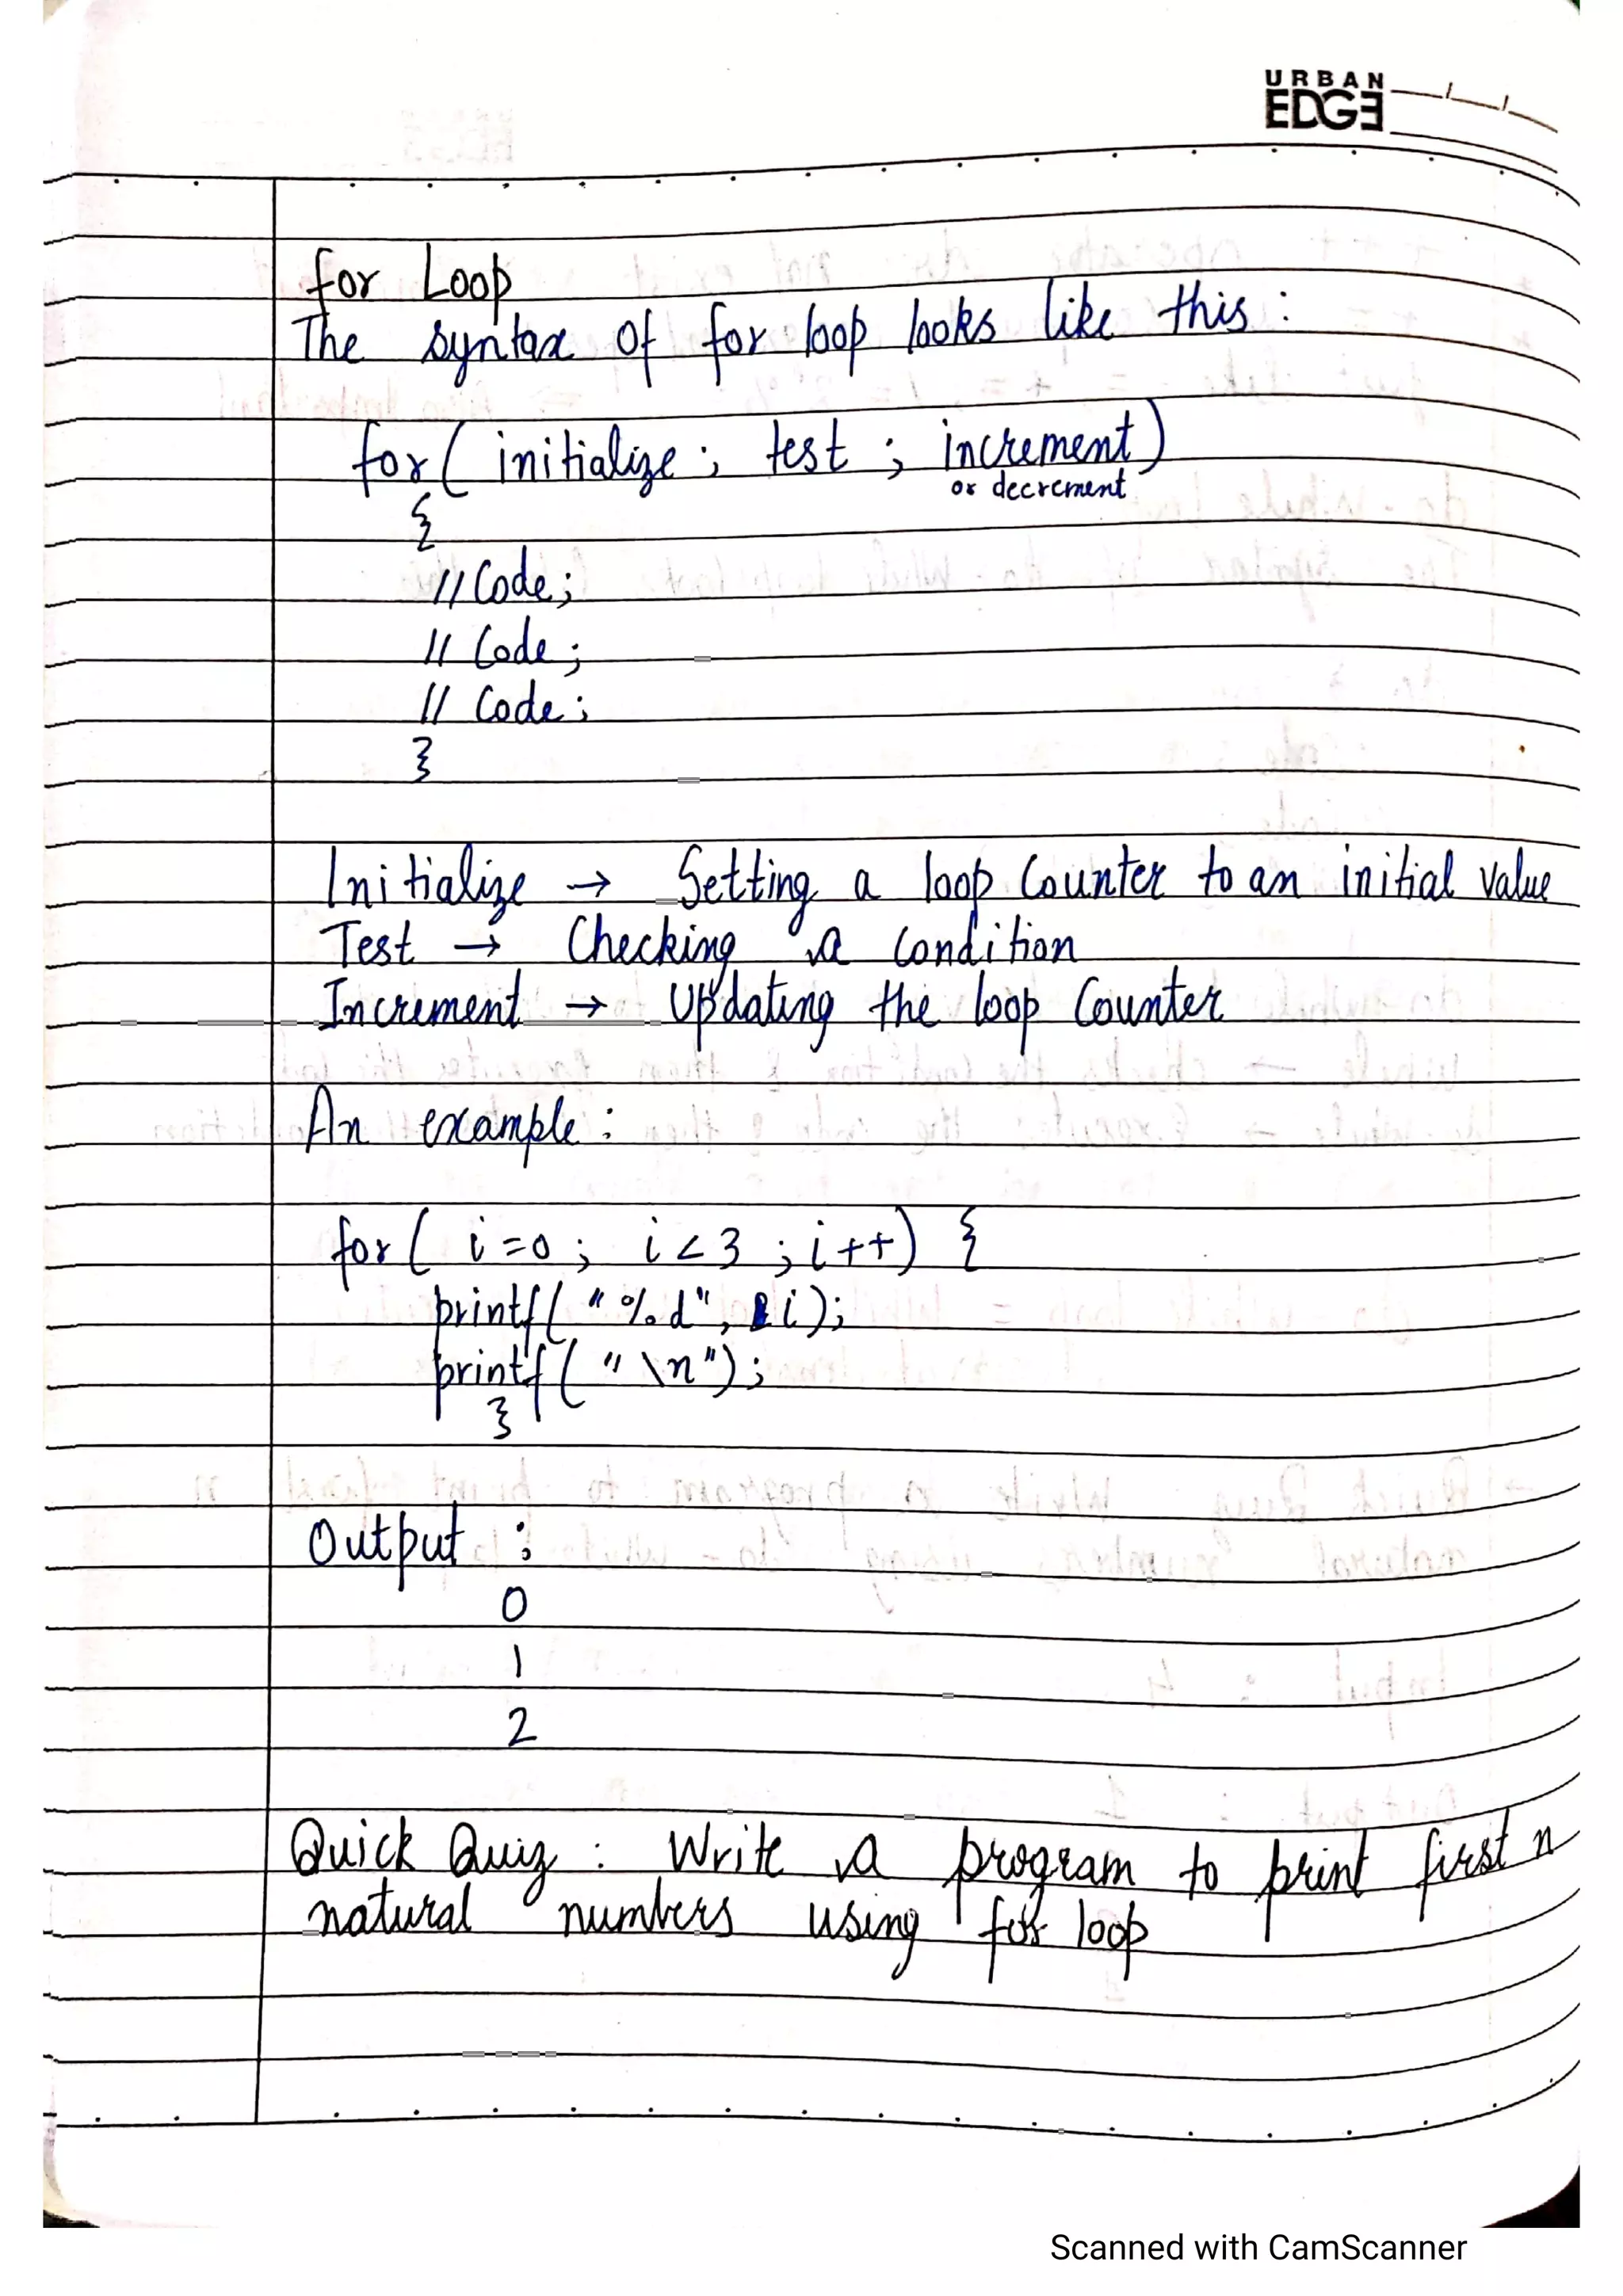 URBAN
EDGE
for Loop
The syntax of for loop looks like this :
for ( initialize ; test ; increment )
or decrement
{
// Code ;
// Code ;
// Code ;
}
Initialize → Setting a loop Counter to an initial value
Test → Checking a Condition
Increment → Updating the loop Counter
An example :
for ( i = 0 ; i < 3 ; i ++ ) {
printf ( " %d", i ) ;
printf ( " \n" ) ;
}
Output :
0
1
2
Quick Quiz : Write a program to print first n
natural numbers using for loop
Scanned with CamScanner